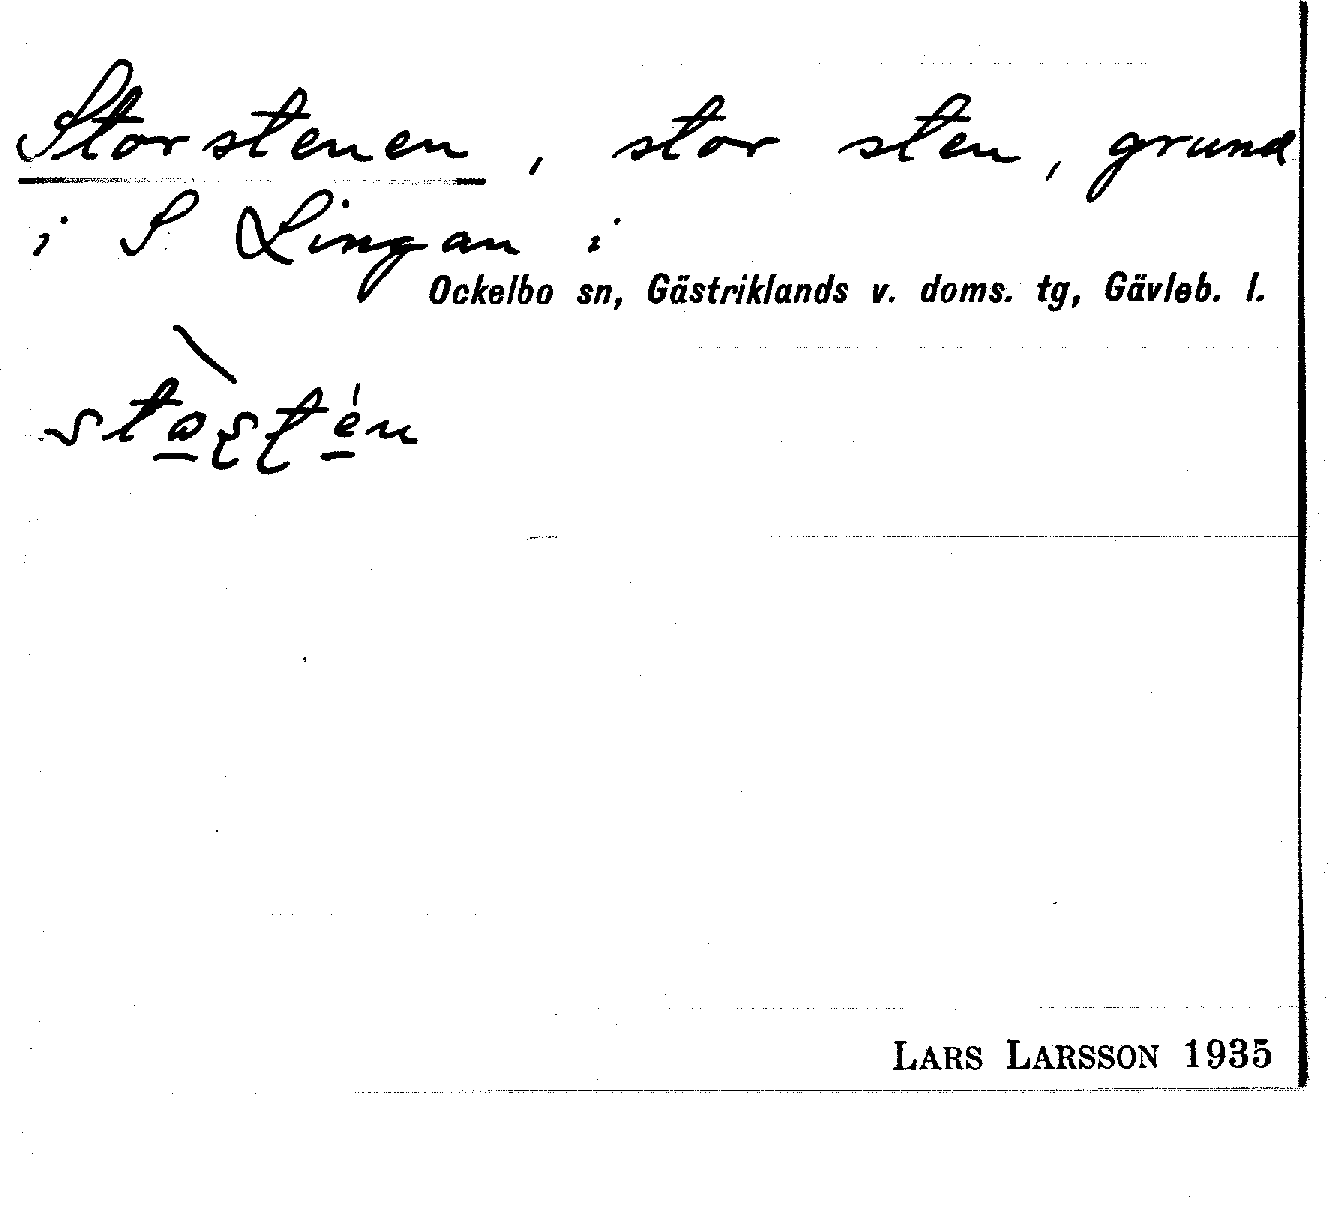 Storstenen, stor sten, grund
i S Lingan i
Ockelbo sn, Gästriklands v. doms. tg, Gävleb. l.
LARS LARSSON 1935